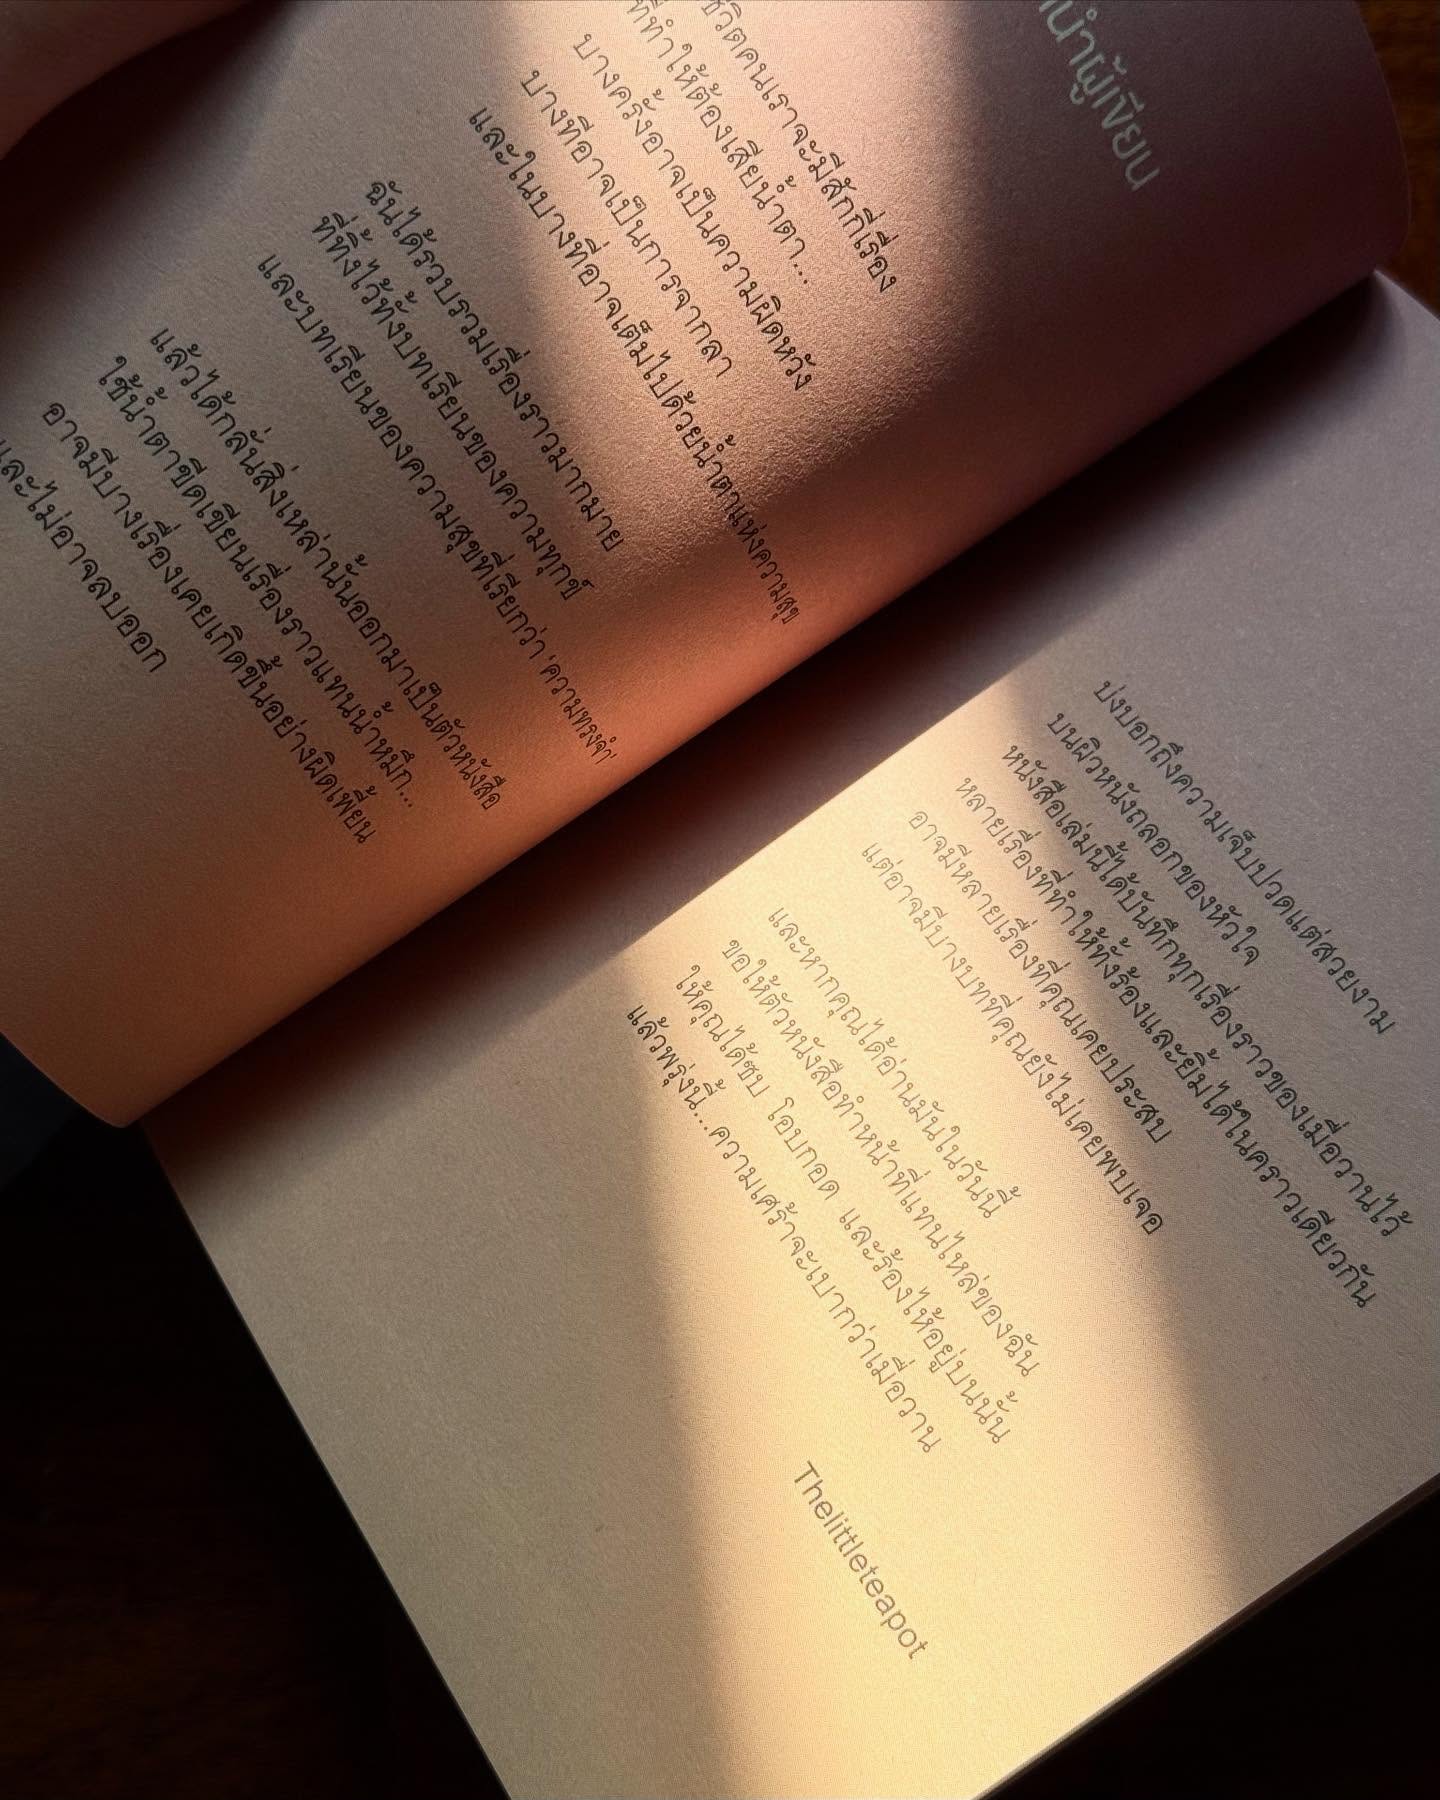 นำผู้เขียน
ชีวิตคนเราจะมีสักกี่เรื่อง
ที่ทำให้ต้องเสียน้ำตา...
บางครั้งอาจเป็นความผิดหวัง
บางทีอาจเป็นการจากลา
และในบางที่อาจเต็มไปด้วยน้ำตาแห่งความสุข
ฉันได้รวบรวมเรื่องราวมากมาย
ที่ทิ้งไว้ทั้งบทเรียนของความทุกข์
และบทเรียนของความสุขที่เรียกว่า 'ความทรงจำ'
แล้วได้กลั่นสิ่งเหล่านั้นออกมาเป็นตัวหนังสือ
ใช้น้ำตาขีดเขียนเรื่องราวแทนน้ำหมึก...
อาจมีบางเรื่องเคยเกิดขึ้นอย่างผิดเพี้ยน
และไม่อาจลบออก
บ่งบอกถึงความเจ็บปวดแต่สวยงาม
บนผิวหนังถลอกของหัวใจ
หนังสือเล่มนี้ได้บันทึกทุกเรื่องราวของเมื่อวานไว้
หลายเรื่องที่ทำให้ทั้งร้องและยิ้มได้ในคราวเดียวกัน
อาจมีหลายเรื่องที่คุณเคยประสบ
แต่อาจมีบางบทที่คุณยังไม่เคยพบเจอ
และหากคุณได้อ่านมันในวันนี้
ขอให้ตัวหนังสือทำหน้าที่แทนไหล่ของฉัน
ให้คุณได้ซบ โอบกอด และร้องไห้อยู่บนนั้น
แล้วพรุ่งนี้...ความเศร้าจะเบากว่าเมื่อวาน
Thelittleteapot